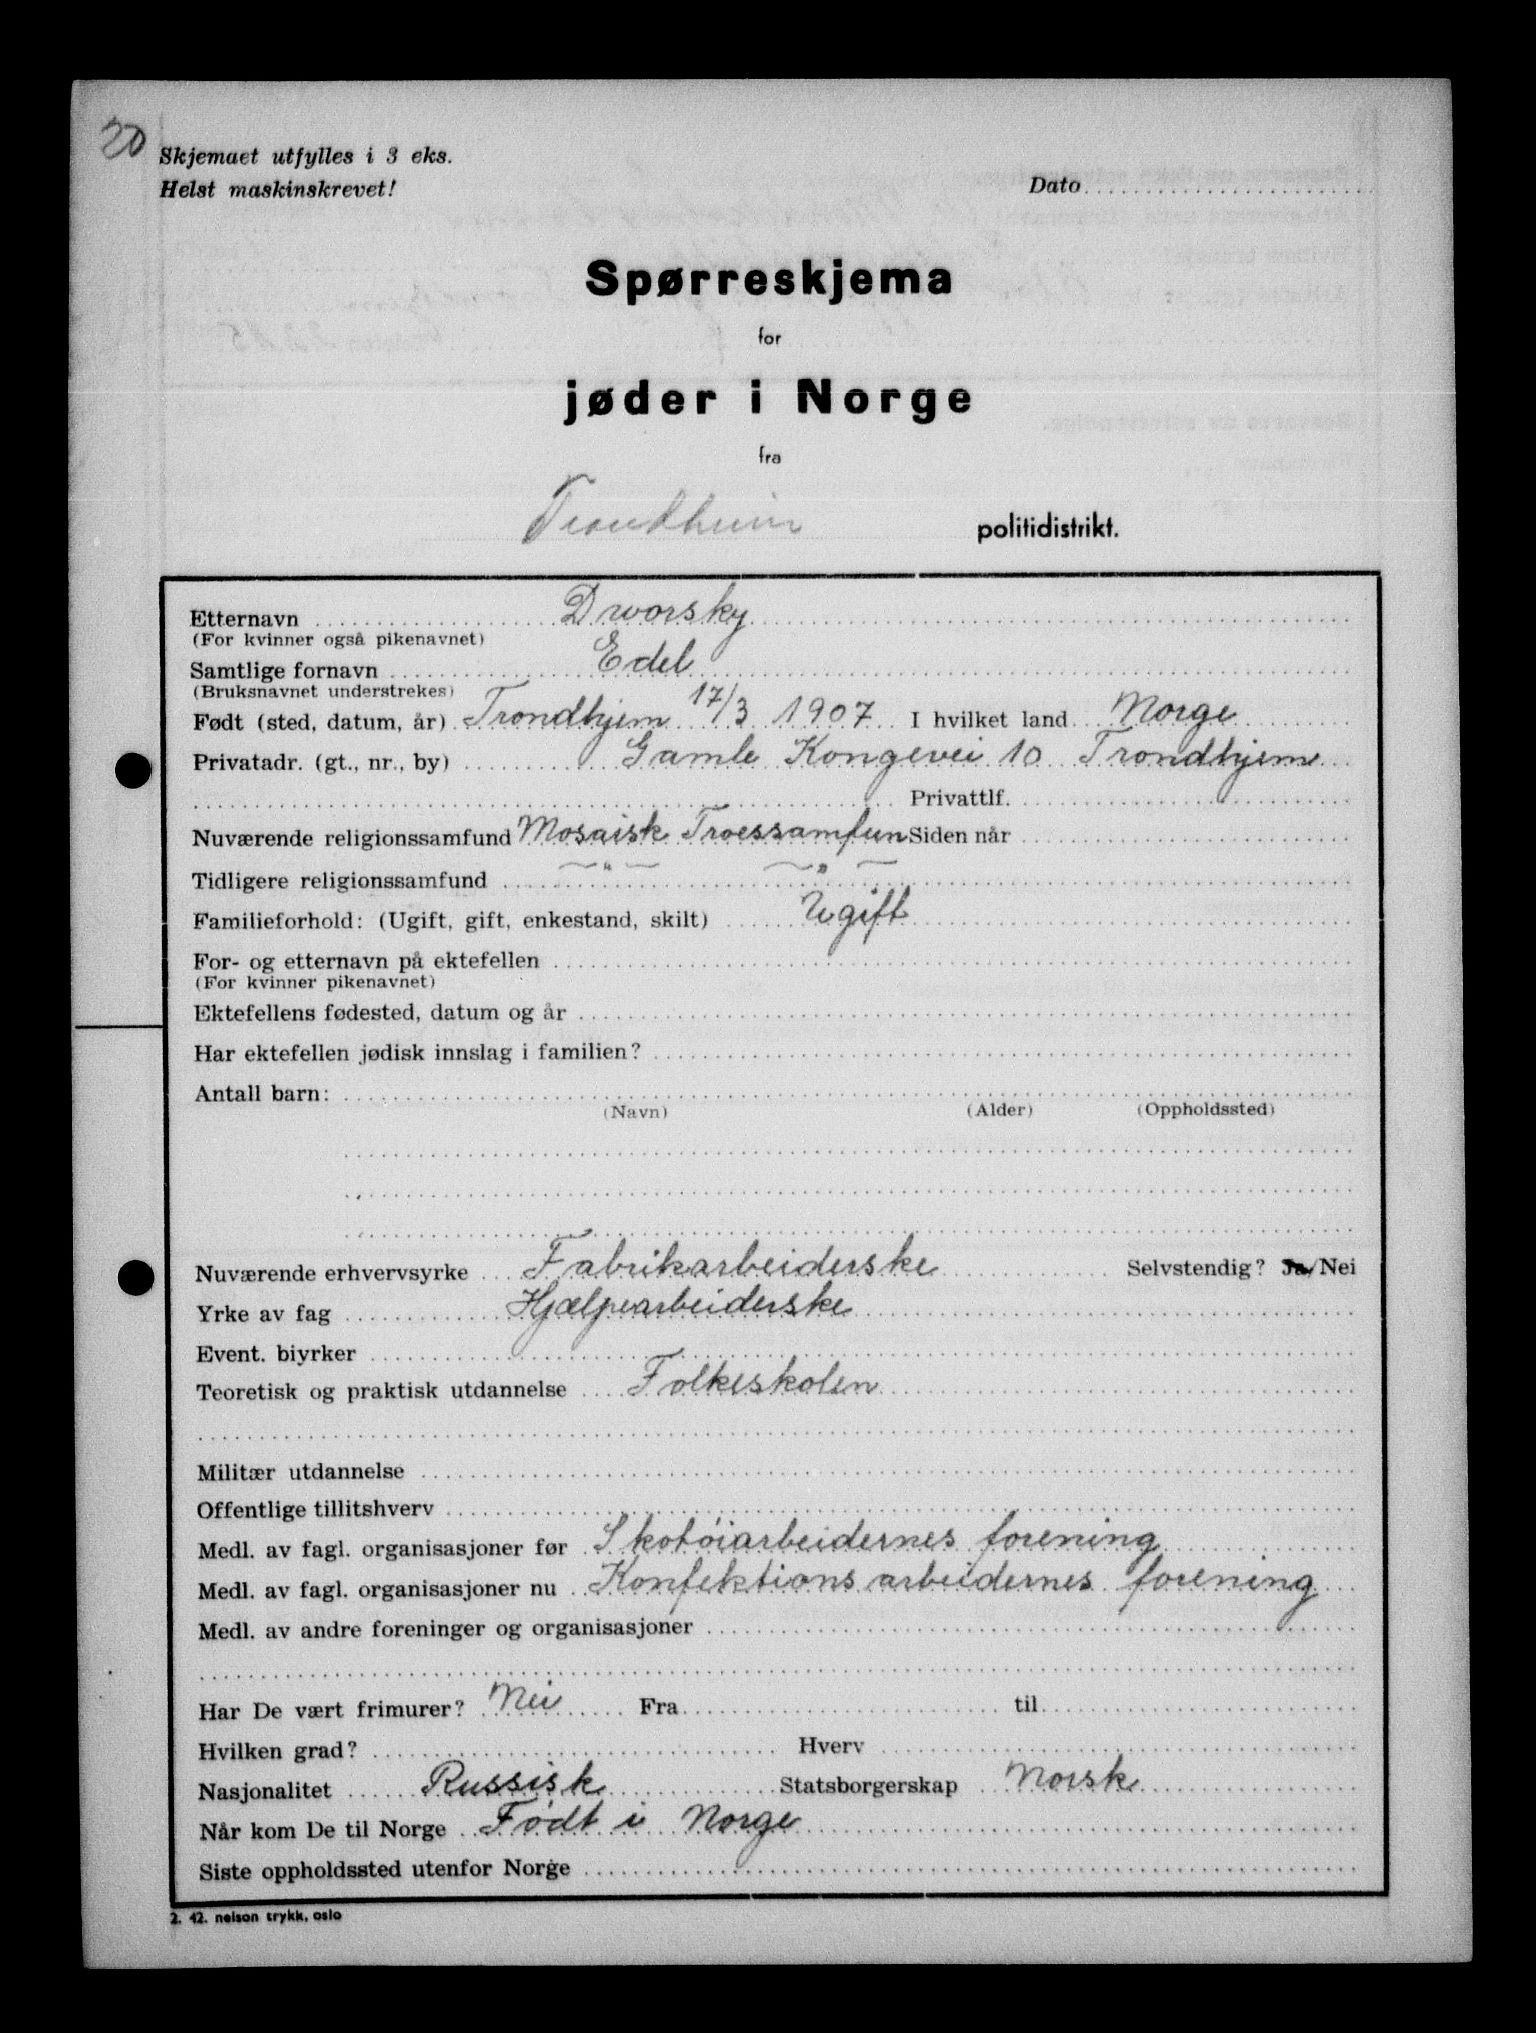 20
Skjemaet utfylles i 3 eks.
Helst maskinskrevet!
Dato
Spørreskjema
for
jøder i Norge
fra
Trondheim politidistrikt.
Etternavn Dworsky
(For kvinner også pikenavnet)
Samtlige fornavn Edel
(Bruksnavnet understrekes)
Født (sted, datum, år) Trondhjem 17/3 1907 I hvilket land Norge
Privatadr. (gt., nr., by) Gamle Kongevei 10 Trondhjem
Privattlf.
Nuværende religionssamfund Mosaisk Troessamfun Siden når
Tidligere religionssamfund — " — — " —
Familieforhold: (Ugift, gift, enkestand, skilt) Ugift
For- og etternavn på ektefellen
(For kvinner pikenavnet)
Ektefellens fødested, datum og år
Har ektefellen jødisk innslag i familien?
Antall barn:
(Navn) (Alder) (Oppholdssted)
Nuværende erhvervsyrke Fabrikarbeiderske Selvstendig? Ja/Nei
Yrke av fag Hjælpearbeiderske
Event. biyrker
Teoretisk og praktisk utdannelse Folkeskolen
Militær utdannelse
Offentlige tillitshverv
Medl. av fagl. organisasjoner før Skotøiarbeidernes forening
Medl. av fagl. organisasjoner nu Konfektionsarbeidernes forening
Medl. av andre foreninger og organisasjoner
Har De vært frimurer? Nei Fra til
Hvilken grad? Hverv
Nasjonalitet Russisk Statsborgerskap Norsk
Når kom De til Norge Født i Norge
Siste oppholdssted utenfor Norge
2. 42. nelson trykk, oslo